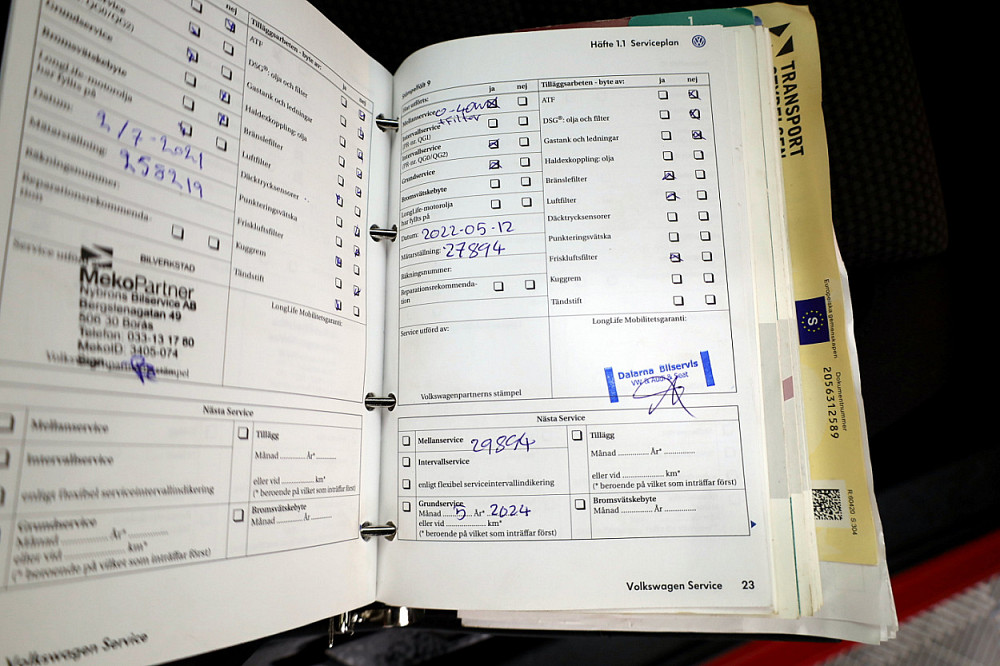 nej
Grundservice
Bromsvätskebyte
LongLife-motorolja
har fyllts på
Datum:
2/7-2021
Mätarställning:
258219
Räkningsnummer:
Reparationsrekommenda-
tion
BILVERKSTAD
MekoPartner
Nybrons Bilservice AB
500 30 Borås
Telefon: 033-13 17 80
MekoID: 3405-074
Tilläggsarbeten - byte av:
ja
nej
ATF
DSG®: olja och filter
Gastank och ledningar
Haldexkoppling: olja
Bränslefilter
Luftfilter
Däcktrycksensorer
Punkteringsvätska
Friskluftsfilter
Kuggrem
Tändstift
LongLife Mobilitetsgaranti:
Nästa Service
Mellanservice
Intervallservice
enligt flexibel serviceintervallindikering
Grundservice
Månad ............ År*
eller vid ............ km*
(* beroende på vilket som inträffar först)
Tillägg
Månad ............ År* ............
eller vid ............ km*
(* beroende på vilket som inträffar först)
Bromsvätskebyte
Månad ............ År ............
Volkswagen Service
Häfte 1.1 Serviceplan
ja
nej
Mellanservice 0-40W
+ Filter
Intervallservice
(PR-nr. QG1)
Intervallservice
(PR-nr. QG0/QG2)
Grundservice
Bromsvätskebyte
LongLife-motorolja
har fyllts på
Datum: 2022-05-12
Mätarställning: 27894
Räkningsnummer:
Reparationsrekommenda-
tion
Service utförd av:
Volkswagenpartnerns stämpel
Tilläggsarbeten - byte av:
ja
nej
ATF
DSG®: olja och filter
Gastank och ledningar
Haldexkoppling: olja
Bränslefilter
Luftfilter
Däcktrycksensorer
Punkteringsvätska
Friskluftsfilter
Kuggrem
Tändstift
LongLife Mobilitetsgaranti:
Dalarna Bilservis
VW & Audi & Seat
Nästa Service
Mellanservice 29894
Intervallservice
enligt flexibel serviceintervallindikering
Grundservice
Månad 5 År* 2024
eller vid ............ km*
(* beroende på vilket som inträffar först)
Tillägg
Månad ............ År* ............
eller vid ............ km*
(* beroende på vilket som inträffar först)
Bromsvätskebyte
Månad ............ År ............
Volkswagen Service 23
1
TRANSPORT
STYRELSEN
S
Europeiska gemenskapen
Dokumentnummer
2056312589